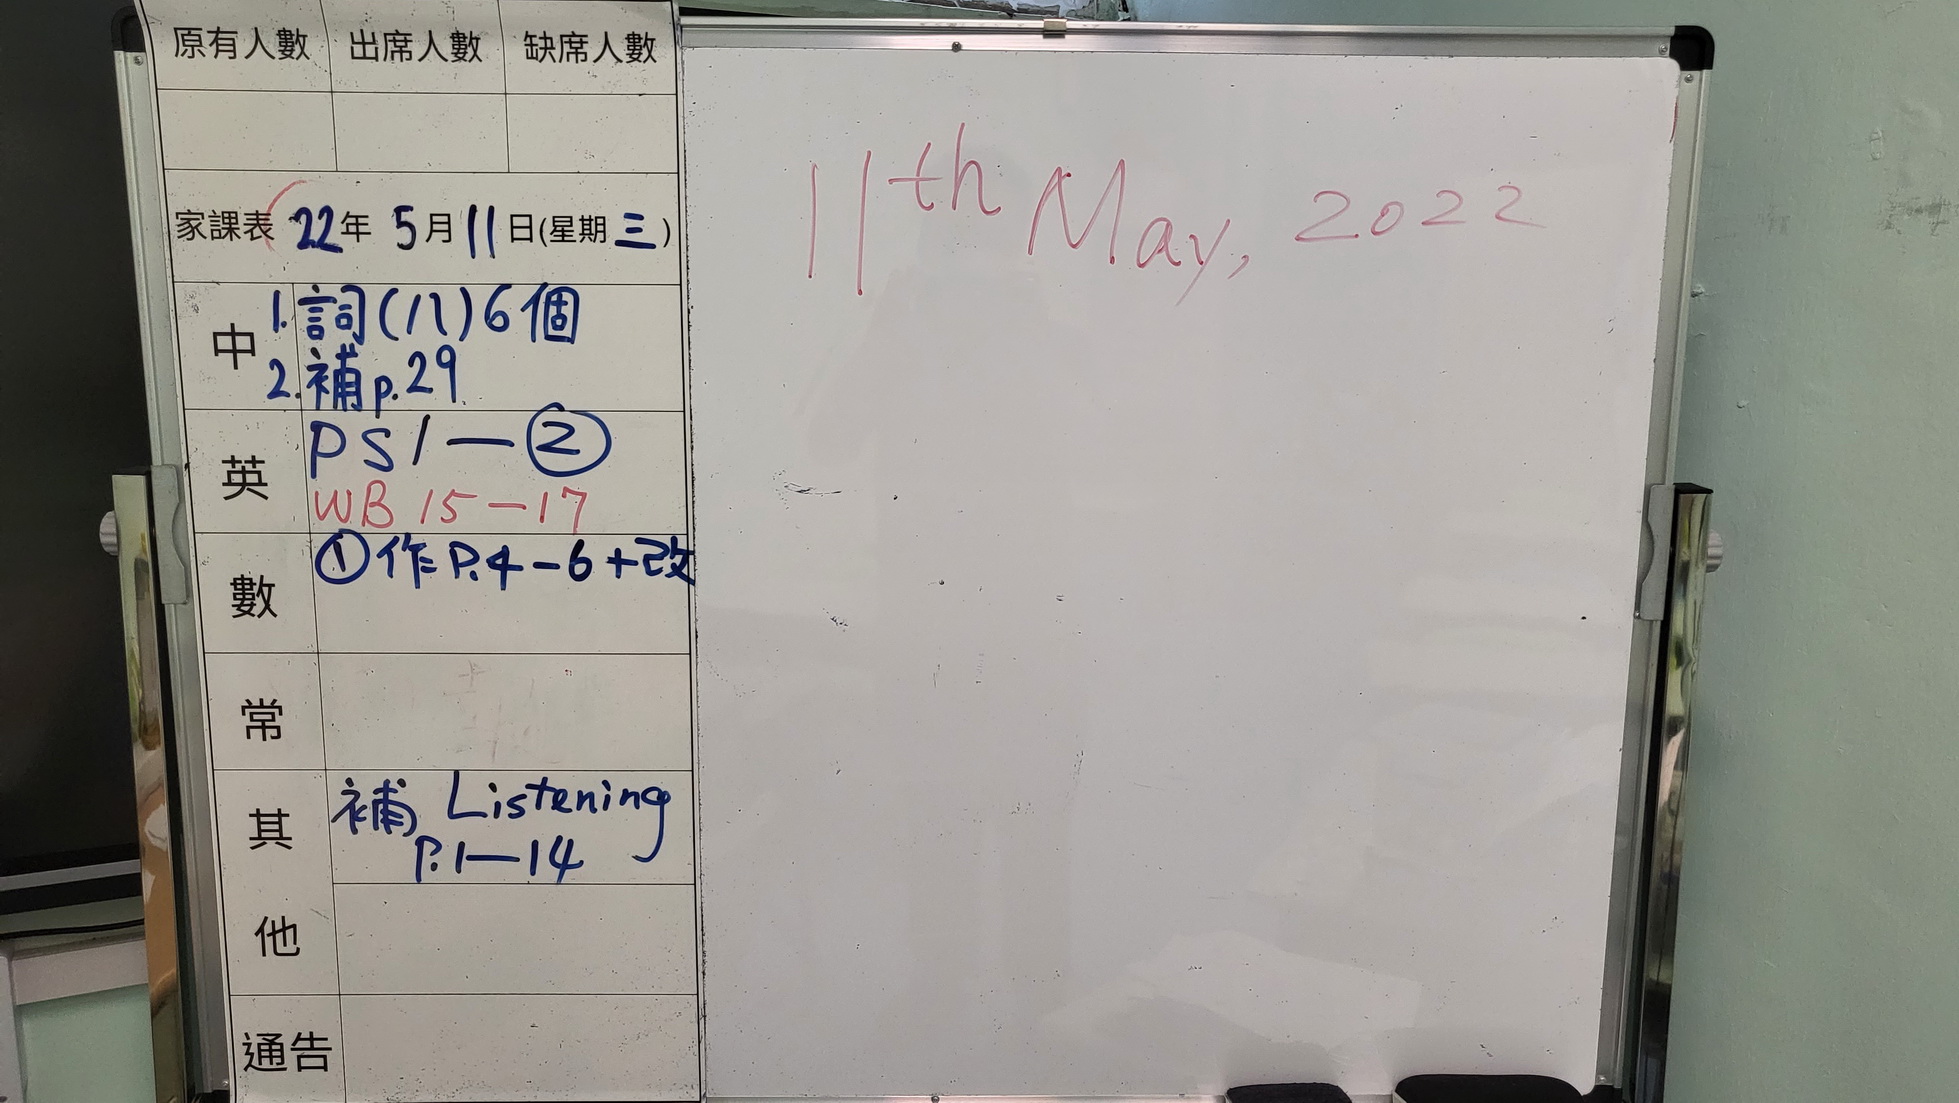 原有人數 出席人數 缺席人數
家課表 22年 5月11日(星期三)
中 1.詞(八)6個
2.補p.29
英 PS1—②
WB 15-17
數 ①作P.4-6+改
常
其他 補 Listening
P.1—14
通告
11th May, 2022